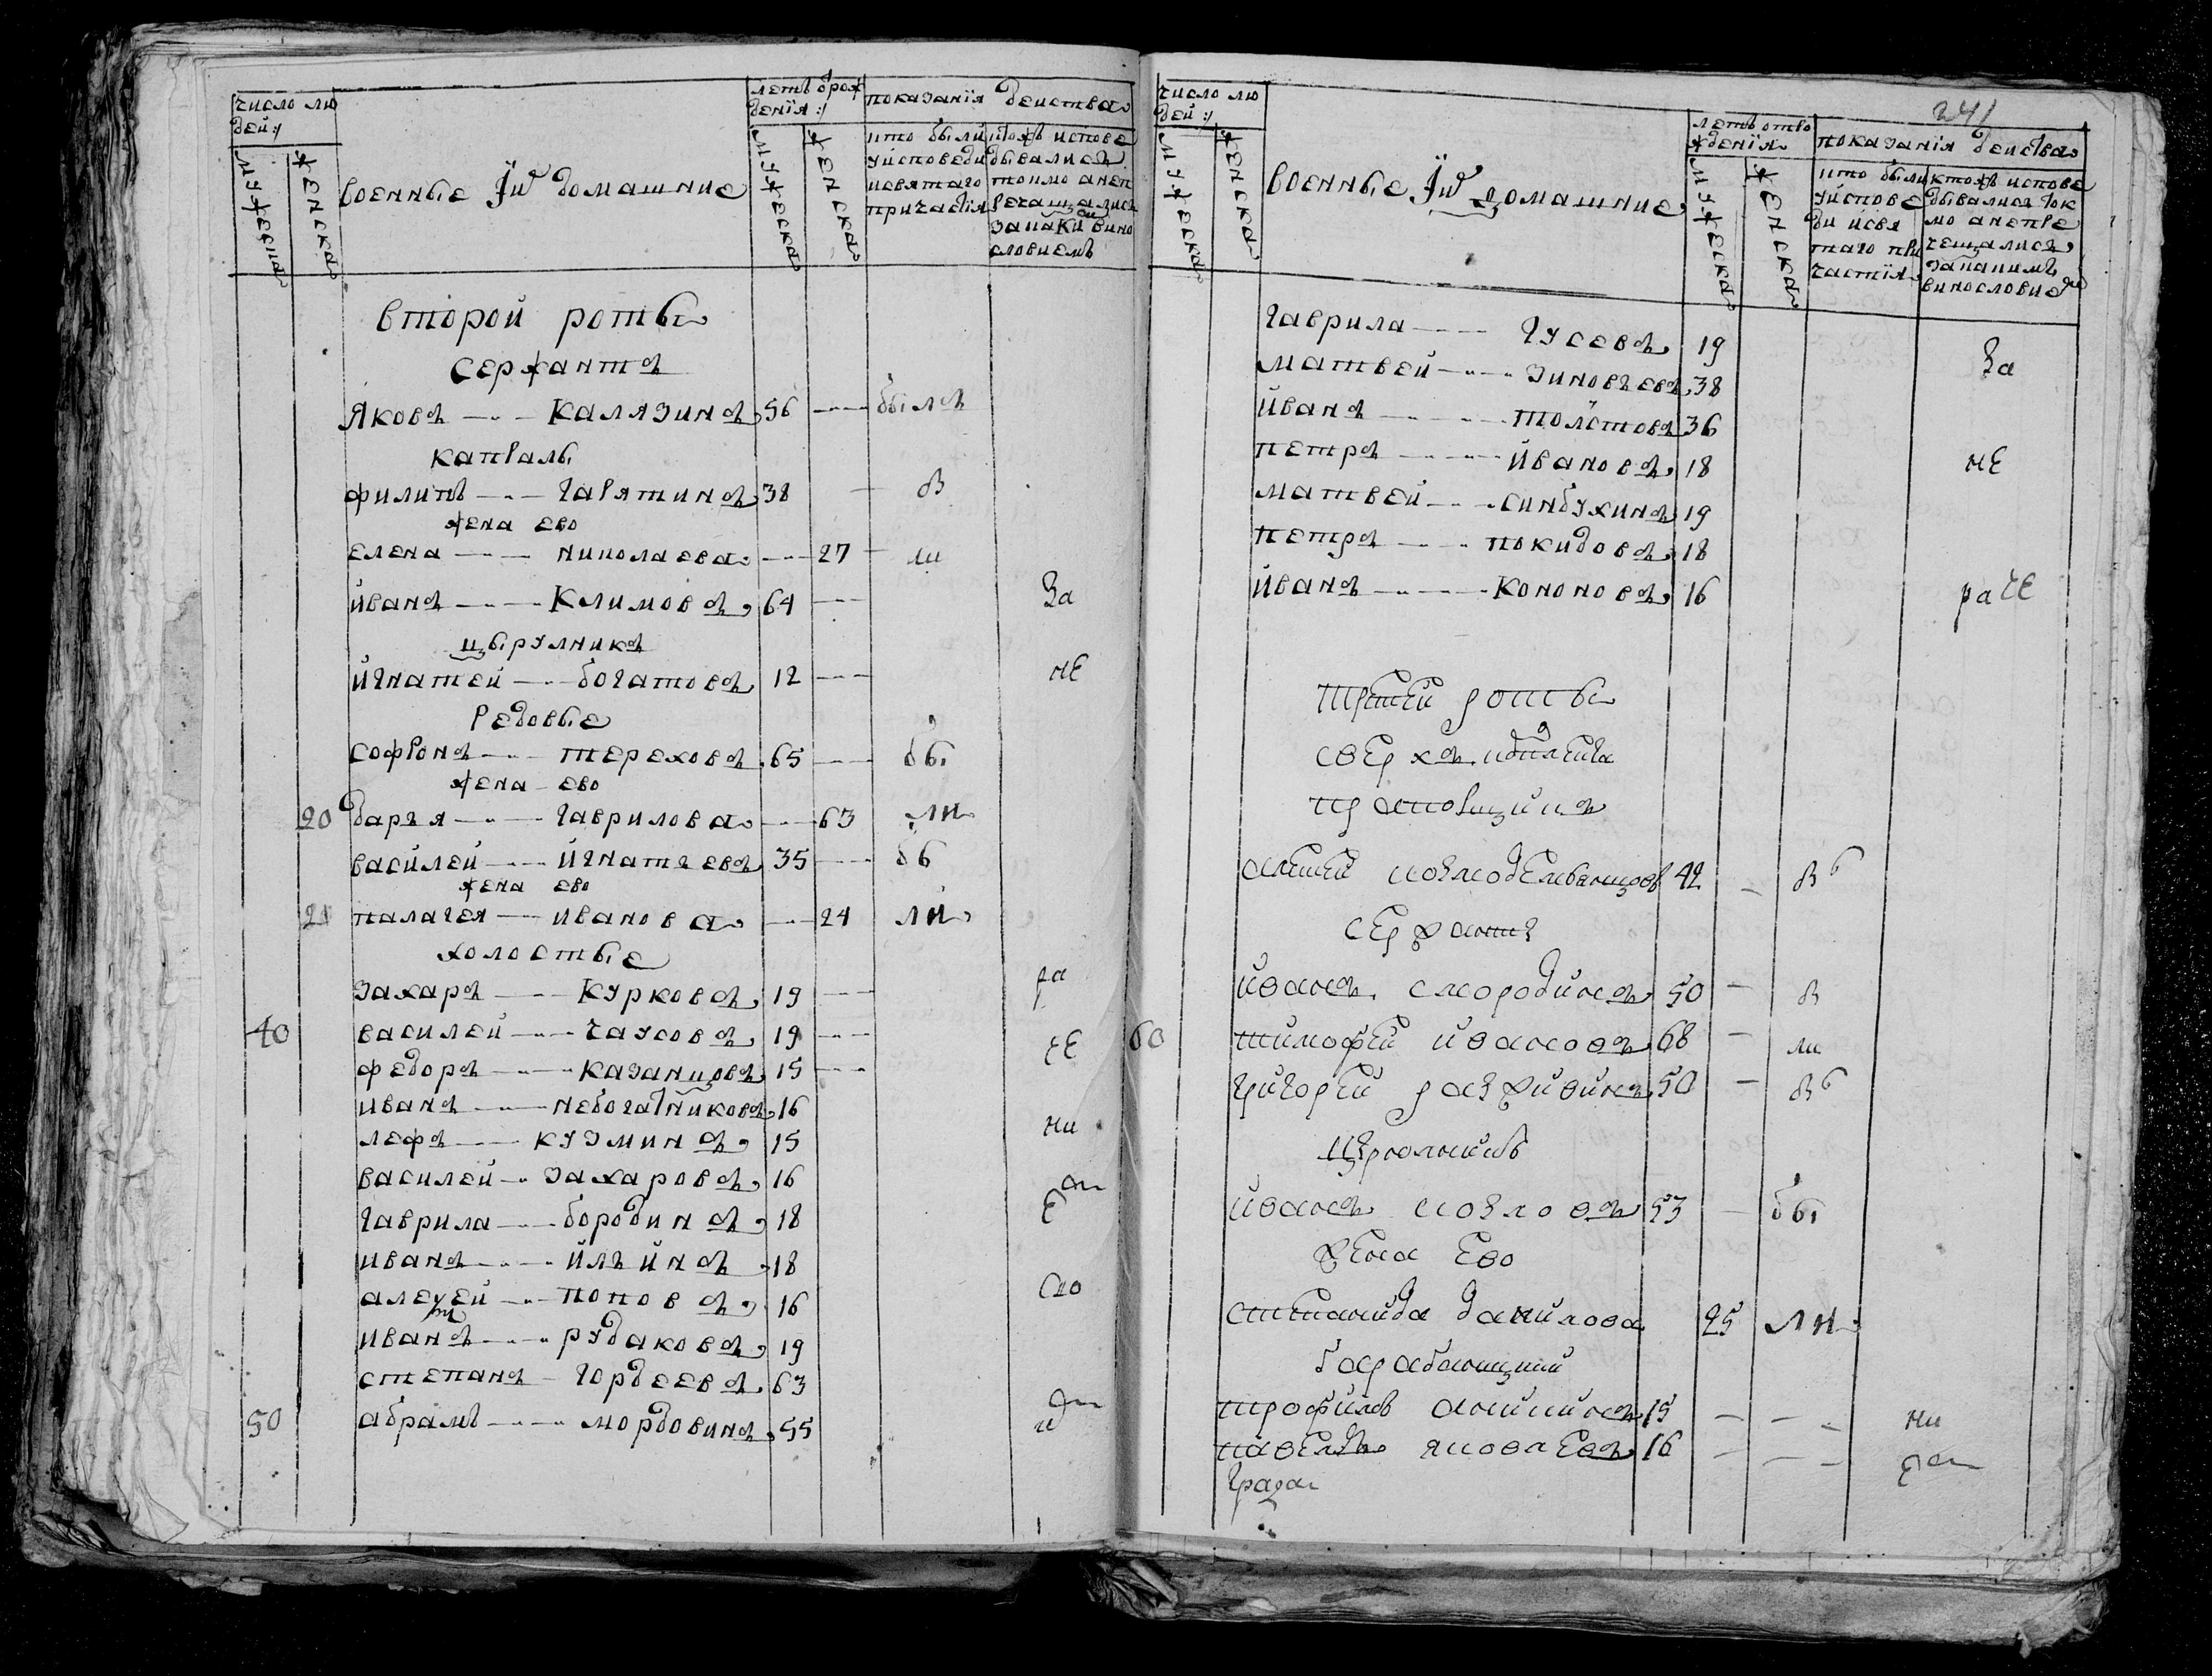 число лю
дей:/
мужеска
женска
военные Їих домашние
летъ ѿрож
денїя:/
мужеска
женска
показанїя действа
кто были
у исповеди
исвятаго
причастїя
ктожъ испове
дывались
токмо анеп
речащались
Запаким вино
словиемъ
второй роты
сержантъ
Яковъ Калязинъ 56 былъ
капралы
филипъ Гарятинъ 38 в
жена ево
елена николаева 27 ли
иванъ Климовъ 64 За
цырулникъ
игнатей богатовъ 12 не
Редовые
софронъ тереховъ 65 бы
жена ево
20 дарья гаврилова 63 ли
василей игнатьевъ 35 бы
жена ево
21 палагея иванова 24 ли
холостые
захаръ Курковъ 19 ра
40 василей чаусовъ 19 че
федоръ казанцовъ 15
иванъ небогатиковъ 16
лефъ кузминъ 15 ни
василей захаровъ 16
гаврила бородинъ 18 ем
иванъ ильинъ 18
алексей поповъ 16
иванъ рудаковъ 19
степанъ гордеевъ 63
50 абрамъ мордовинъ 55
241
число лю
дей:/
мужеска
женска
военные Їих домашние
летъ отро
жденїя
мужеска
женска
показанїя действа
кто были
уиспове
ди исвя
таго при
частїя
ктожъ испове
дывалися ток
мо анепре
чещались
запакимъ
винословие
гаврила гусевъ 19 За
матвей зиновьевъ 38
иванъ толстовъ 36
петръ ивановъ 18 не
матвей синбухинъ 19
петръ покидовъ 18
иванъ кононовъ 16 раче
третей роты
сверхъ комплекта
прапорщикъ
42
сержанты
иванъ смородинъ 50 в
60 тимофей ивановъ 68 ли
григорей 50
цырюлникъ
иванъ козловъ 53 бы
жена ево
степанида данилова 25 ли
барабанщики
трофимъ аникинъ 15 ни
павелъ яковлевъ 16 ем